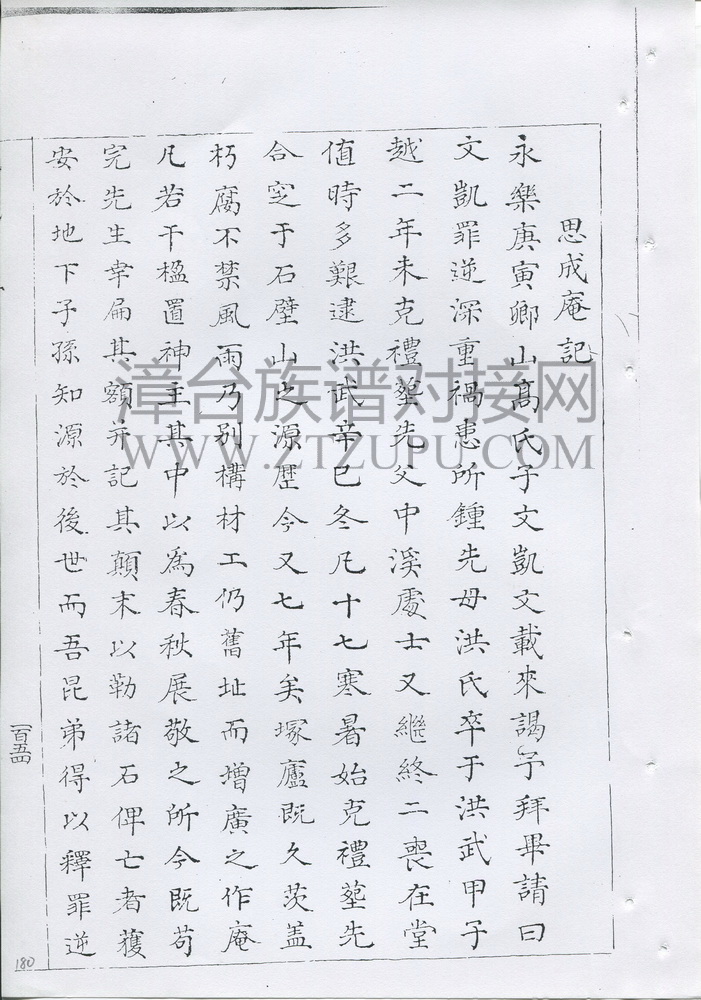 思成庵記
永樂庚寅鄉山高氏子文凱文載來謁予拜畢請曰
文凱罪逆深重禍患所鍾先母洪氏卒于洪武甲子
越二年未克禮塟先父中溪處士又繼終二喪在堂
值時多艱逮洪武辛巳冬凡十七寒暑始克禮塟先
合窆于石壁山之源歷今又七年矣塚廬既久茨蓋
朽腐不禁風雨乃別構材工仍舊址而增廣之作庵
凡若干楹置神主其中以為春秋展敬之所今既苟
完先生幸扁其額并記其顛末以勒諸石俾亡者獲
安於地下子孫知源於後世而吾昆弟得以釋罪逆
一百五四
180
漳台族谱对接网
WWW.ZTZUPU.COM